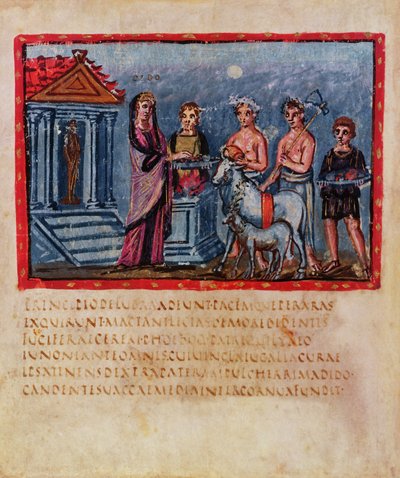 DIDO
PRINCIPIO DELUBRA ADEUNT PACEMQUE PER ARAS
EXQUIRUNT MACTANT LECTAS DE MORE BIDENTIS
LEGIFERAE CERERI PHOEBOQ PATRIQ LYAEO
IUNONI ANTE OMNIS CUI UINCLA IUGALIA CURAE
IPSA TENENS DEXTRA PATERAM PULCHERRIMA DIDO
CANDENTIS UACCAE MEDIA INTER CORNUA FUNDIT